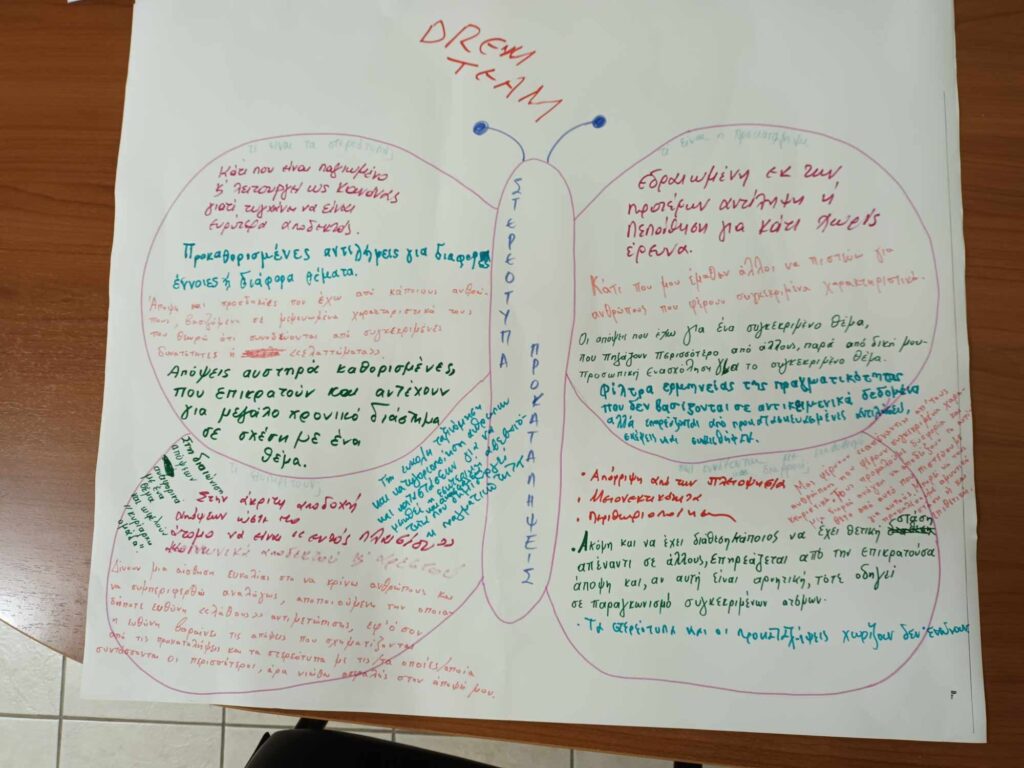 DREAM
TEAM
ΣΤΕΡΕΟΤΥΠΑ
ΠΡΟΚΑΤΑΛΗΨΕΙΣ
τι είναι τα στερεότυπα;
Κάτι που είναι παγιωμένο
& λειτουργεί ως κανόνας
γιατί τυγχάνει να είναι
ευρύτερα αποδεκτός.
Προκαθορισμένες αντιλήψεις για διάφορες
έννοιες ή διάφορα θέματα.
Άποψη και προσδοκίες που έχω από κάποιους ανθρώ-
πους, βασιζόμενη σε μεμονωμένα χαρακτηριστικά τους
που θεωρώ ότι συνδέονται από συγκεκριμένες
δυνατότητες ή «ελαττώματα».
Απόψεις αυστηρά καθορισμένες,
που επικρατούν και αντέχουν
για μεγάλο χρονικό διάστημα
σε σχέση με ένα
θέμα.
τι είναι η προκατάληψη
εδραιωμένη εκ των
προτέρων αντίληψη ή
πεποίθηση για κάτι χωρίς
έρευνα.
Κάτι που μου έμαθαν άλλοι να πιστεύω για
ανθρώπους που φέρουν συγκεκριμένα χαρακτηριστικά.
Οι απόψεις που έχω για ένα συγκεκριμένο θέμα,
που πηγάζουν περισσότερο από άλλους, παρά από δική μου
προσωπική ενασχόληση με το συγκεκριμένο θέμα.
Φίλτρα ερμηνείας της πραγματικότητας
που δεν βασίζονται σε αντικειμενικά δεδομένα
αλλά επηρεάζονται από προκατασκευασμένες αντιλήψεις,
σκέψεις και
Στη διαιώνιση
απόψεων
με ένα
θέμα
και
Στην άκριτη αποδοχή
απόψεων ώστε το
άτομο να είναι "εντός πλαισίου"
κοινωνικά αποδεκτού & αρεστού
Την εύκολη ταξινόμηση
και κατηγοριοποίηση ανθρώπων
και καταστάσεων για να
Δίνουν μια αίσθηση ευκολίας στο να κρίνω ανθρώπους και
να συμπεριφερθώ αναλόγως, αποποιούμενη την οποια-
δήποτε ευθύνη «λάθους» αντιμετώπισης, εφ'όσον
η ευθύνη βαραίνει τις απόψεις που σχηματίζονται
από τις προκαταλήψεις και τα στερεότυπα με τις/τα οποίες/οποία
συντάσσονται οι περισσότεροι, άρα νιώθω ασφαλής στην άποψή μου.
• Απόρριψη από την πλειοψηφία
• Μειονεκτικότητα
• Περιθωριοποίηση
• Ακόμη και να έχει διάθεση κάποιος να έχει θετική στάση
απέναντι σε άλλους, επηρεάζεται από την επικρατούσα
άποψη και, αν αυτή είναι αρνητική, τότε οδηγεί
σε παραγκωνισμό συγκεκριμένων ατόμων.
• Τα στερεότυπα και οι προκαταλήψεις χωρίζουν δεν ενώνουν